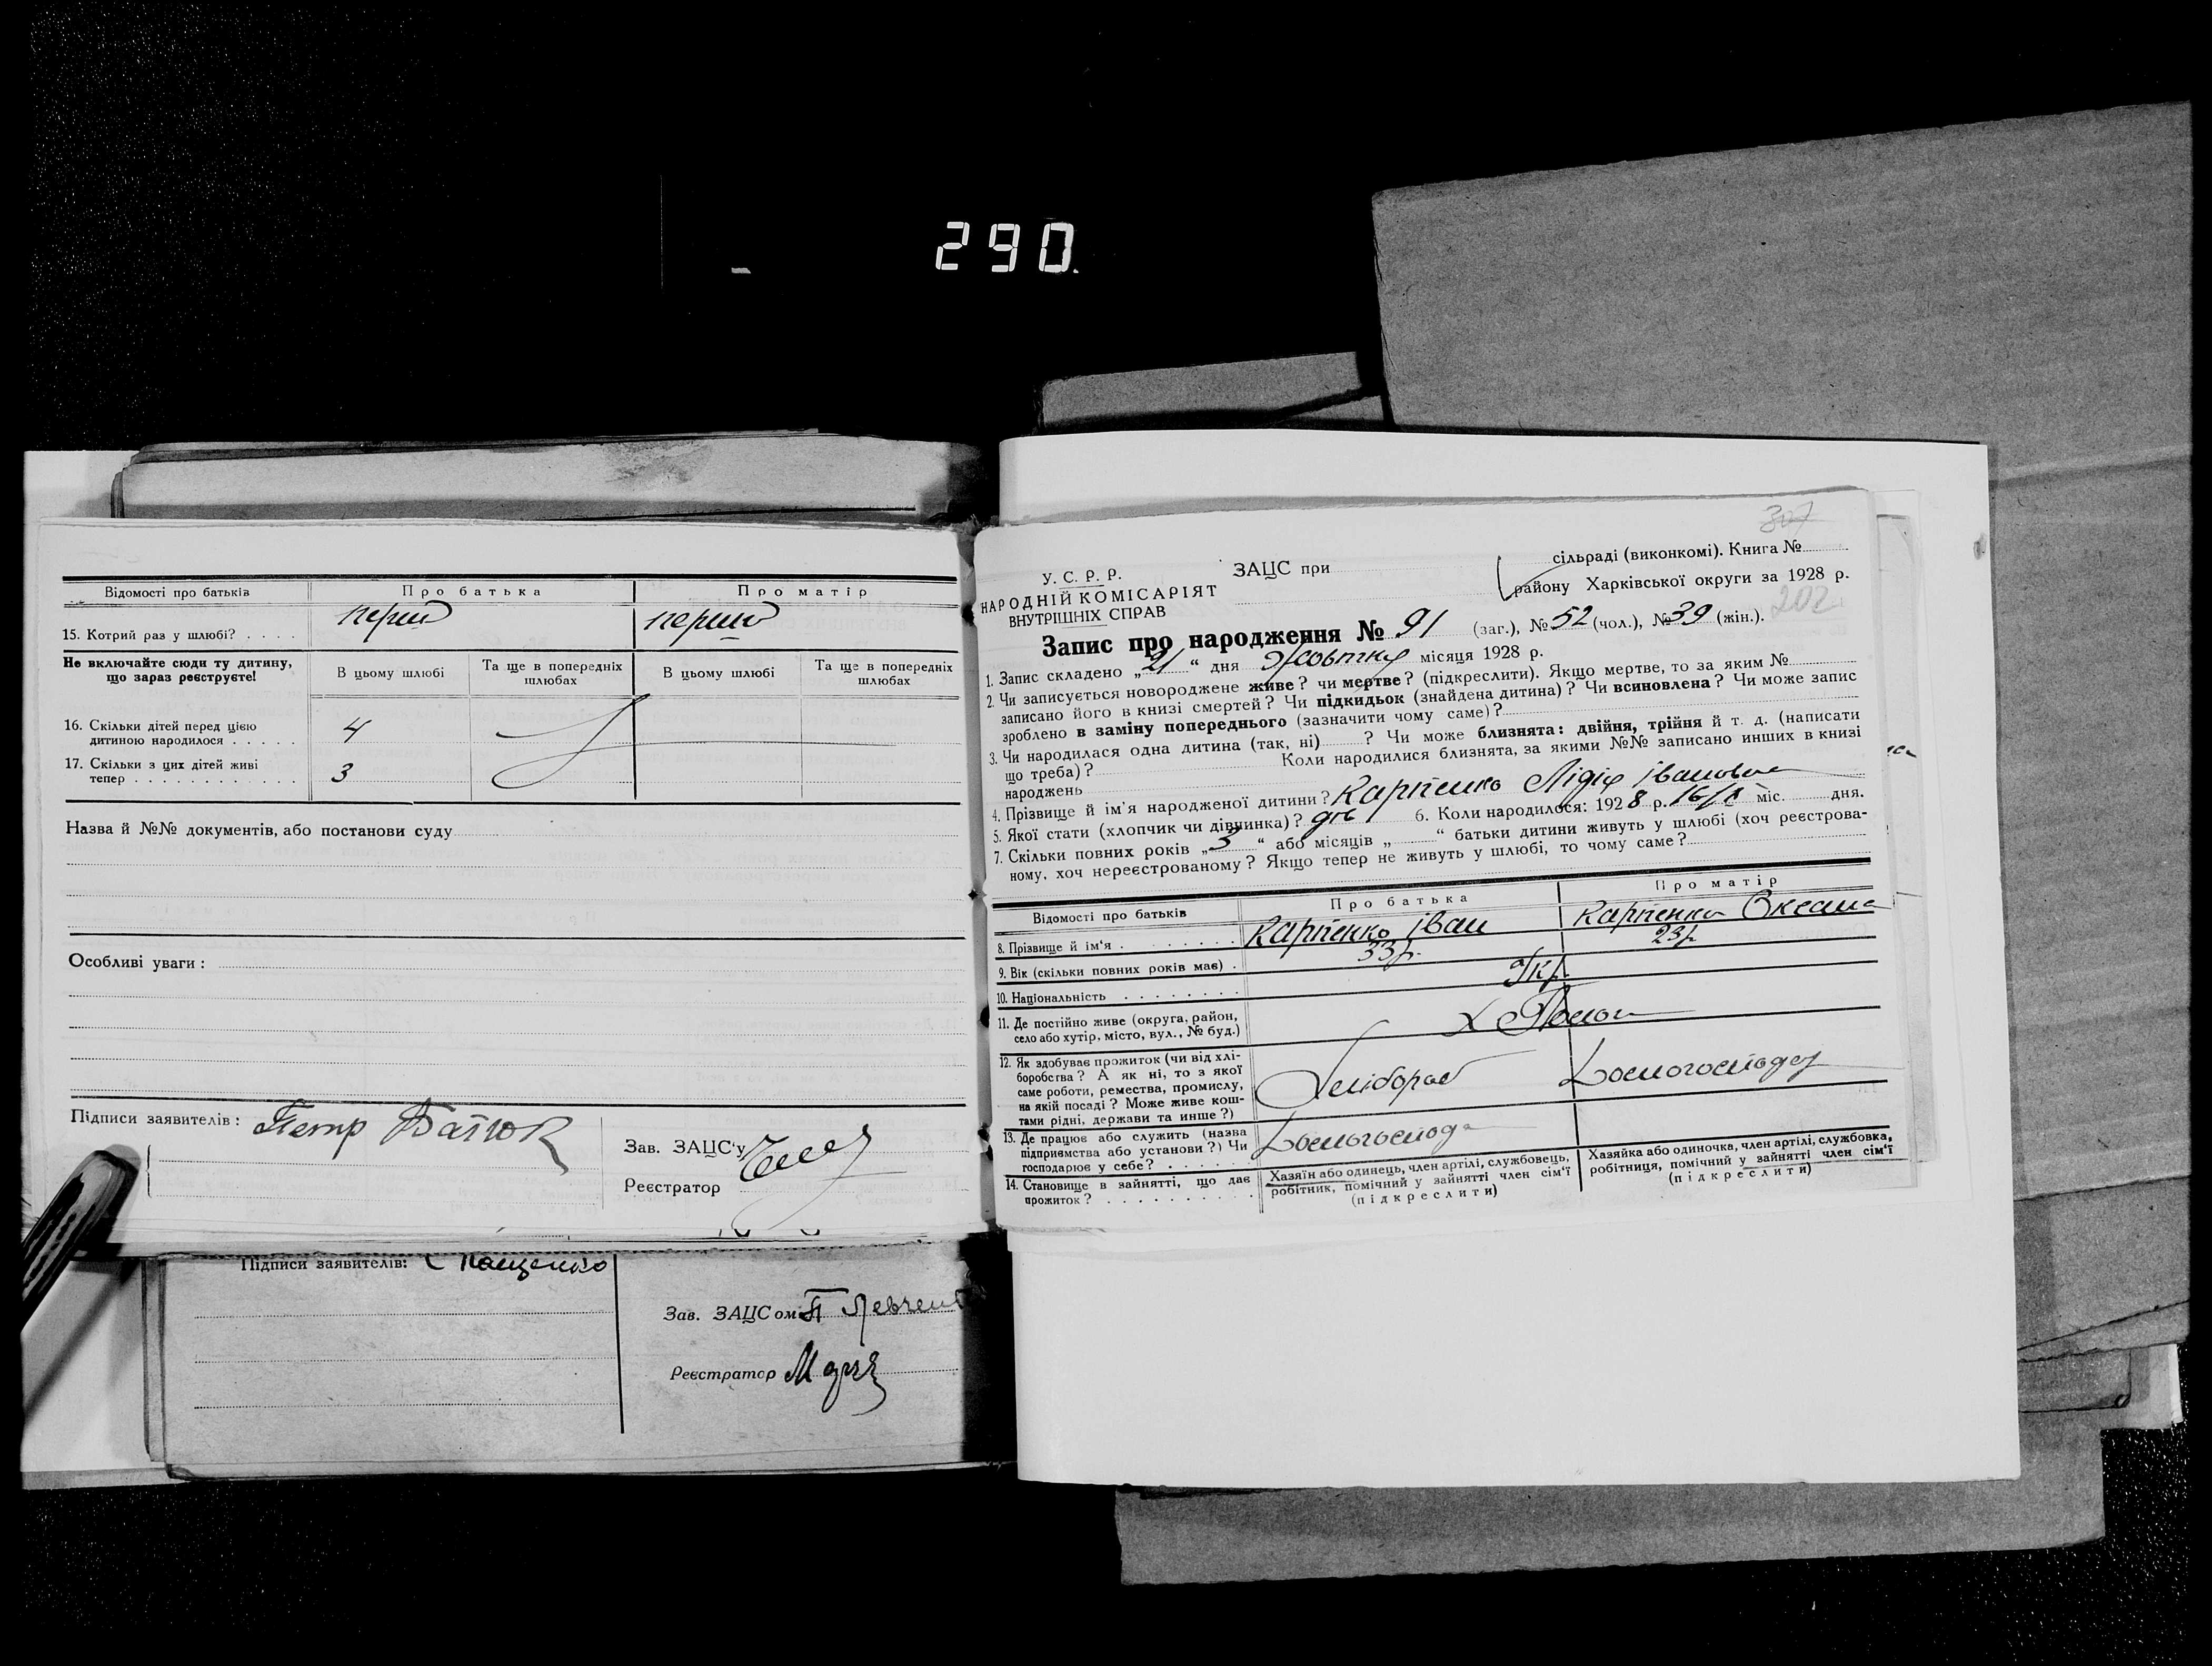 290.
Відомості про батьків
Про батька
Про матір
15. Котрий раз у шлюбі? . . . .
перш
перш
Не включайте сюди ту дитину,
що зараз реєструєте!
В цьому шлюбі
Та ще в попередніх
шлюбах
В цьому шлюбі
Та ще в попередніх
шлюбах
16. Скільки дітей перед цією
дитиною народилося . . . . .
4
17. Скільки з цих дітей живі
тепер . . . . . . . . . . . .
3
Назва й №№ документів, або постанови суду
Особливі уваги :
Підписи заявителів : Петр Батюк
Зав. ЗАЦС'у
Реєстратор
Підписи заявителів: Пащенко
Зав. ЗАЦСом
Реєстратор
307
У. С. Р. Р.
НАРОДНІЙ КОМІСАРІЯТ
ВНУТРІШНІХ СПРАВ
ЗАЦС при
сільраді (виконкомі). Книга №
району Харківської округи за 1928 р.
202
Запис про народження № 91 (заг.), № 52 (чол.), № 39 (жін.).
1. Запис складено „21“ дня Жовтня місяця 1928 р.
2. Чи записується новороджене живе? чи мертве? (підкреслити). Якщо мертве, то за яким №
записано його в книзі смертей? Чи підкидьок (знайдена дитина)? Чи всиновлена? Чи може запис
зроблено в заміну попереднього (зазначити чому саме)?
3. Чи народилася одна дитина (так, ні) ? Чи може близнята: двійня, трійня й т. д. (написати
що треба)? Коли народилися близнята, за якими №№ записано инших в книзі
народжень
4. Прізвище й ім'я народженої дитини? Карпенко Лідія Івановна
5. Якої стати (хлопчик чи дівчинка)? дів 6. Коли народилося: 1928 р. 16/X міс. дня.
7. Скільки повних років „3“ або місяців „ “ батьки дитини живуть у шлюбі (хоч реєстрова-
ному, хоч нереєстрованому? Якщо тепер не живуть у шлюбі, то чому саме?
Відомості про батьків
Про батька
Про матір
8. Прізвище й ім'я . . . . . . . .
Карпенко Іван
Карпенко Оксана
9. Вік (скільки повних років має) .
33р.
23р.
10. Національність . . . . . . . .
Укр.
11. Де постійно живе (округа, район,
село або хутір, місто, вул., № буд.)
12. Як здобуває прожиток (чи від хлі-
боробства? А як ні, то з якої
саме роботи, ремества, промислу,
на якій посаді? Може живе кош-
тами рідні, держави та инше?)
Хлібороб
Домогосподар
13. Де працює або служить (назва
підприємства або установи?) Чи
господарює у себе? . . . . . .
Домогоспода
14. Становище в зайнятті, що дає
прожиток? . . . . . . . . . .
Хазяїн або одинець, член артілі, службовець,
робітник, помічний у зайнятті член сім'ї
(підкреслити)
Хазяйка або одиночка, член артілі, службовка,
робітниця, помічний у зайнятті член сім'ї
(підкреслити)